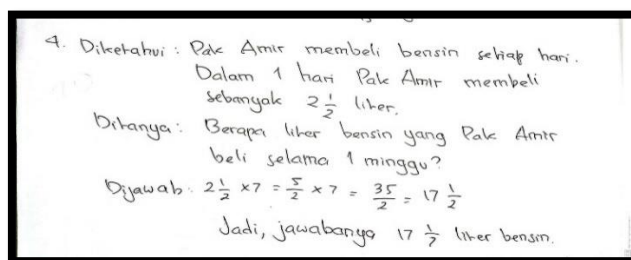 4. Diketahui : Pak Amir membeli bensin setiap hari.
Dalam 1 hari Pak Amir membeli
sebanyak 2 1/2 liter.
Ditanya : Berapa liter bensin yang Pak Amir
beli selama 1 minggu?
Dijawab : 2 1/2 x 7 = 5/2 x 7 = 35/2 = 17 1/2
Jadi, jawabanya 17 1/2 liter bensin.